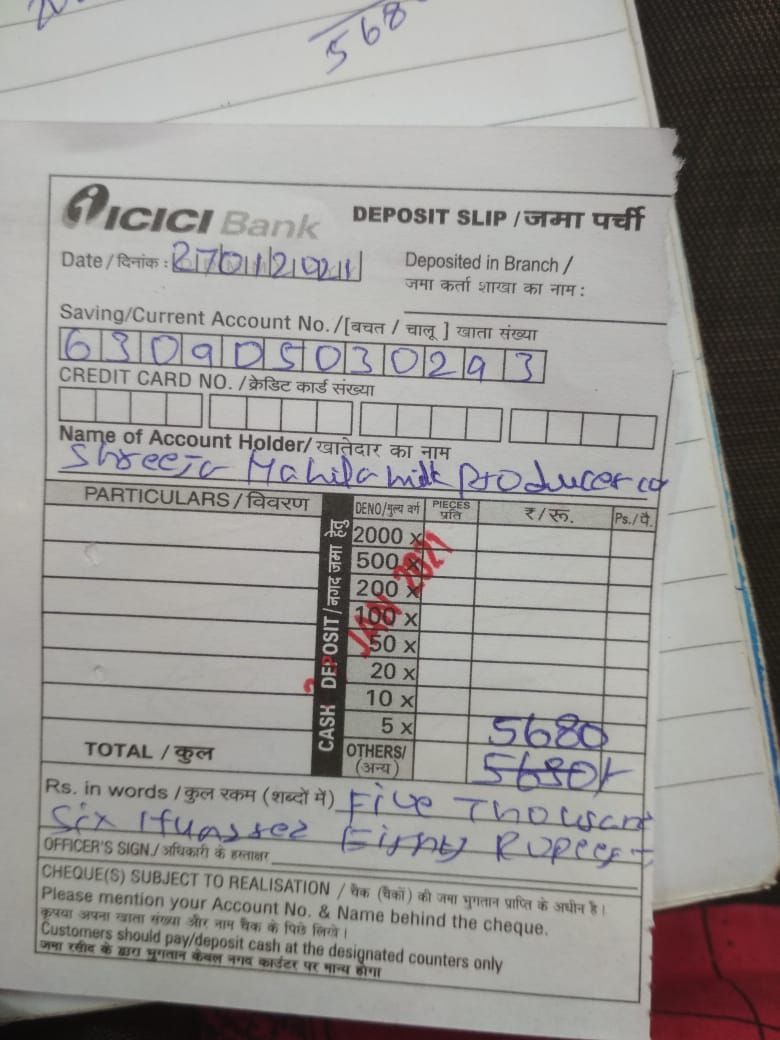 568
ICICI Bank
DEPOSIT SLIP / जमा पर्ची
Date / दिनांक : 27012021
Deposited in Branch /
जमा कर्ता शाखा का नाम :
Saving/Current Account No. /[बचत / चालू ] खाता संख्या
630905030293
CREDIT CARD NO. / क्रेडिट कार्ड संख्या
Name of Account Holder/ खातेदार का नाम
Shreeja Mahila milk producer co
PARTICULARS / विवरण
CASH DEPOSIT / नगद जमा हेतु
DENO/मुल्य वर्ग PIECES प्रति ₹/रू. Ps./पै.
2000 x
500 x
200 x
100 x
50 x
20 x
10 x
5 x 5680
JAN 2021
TOTAL / कुल OTHERS/ (अन्य) 5680/-
Rs. in words / कुल रकम (शब्दों में) Five Thousand
Six Hundred Eighty Rupees
OFFICER'S SIGN./ अधिकारी के हस्ताक्षर
CHEQUE(S) SUBJECT TO REALISATION / चैक (चैकों) की जमा भुगतान प्राप्ति के अधीन है।
Please mention your Account No. & Name behind the cheque.
कृपया अपना खाता संख्या और नाम चैक के पिछे लिखें।
Customers should pay/deposit cash at the designated counters only
जमा रसीद के द्वारा भुगतान केवल नगद काउंटर पर मान्य होगा